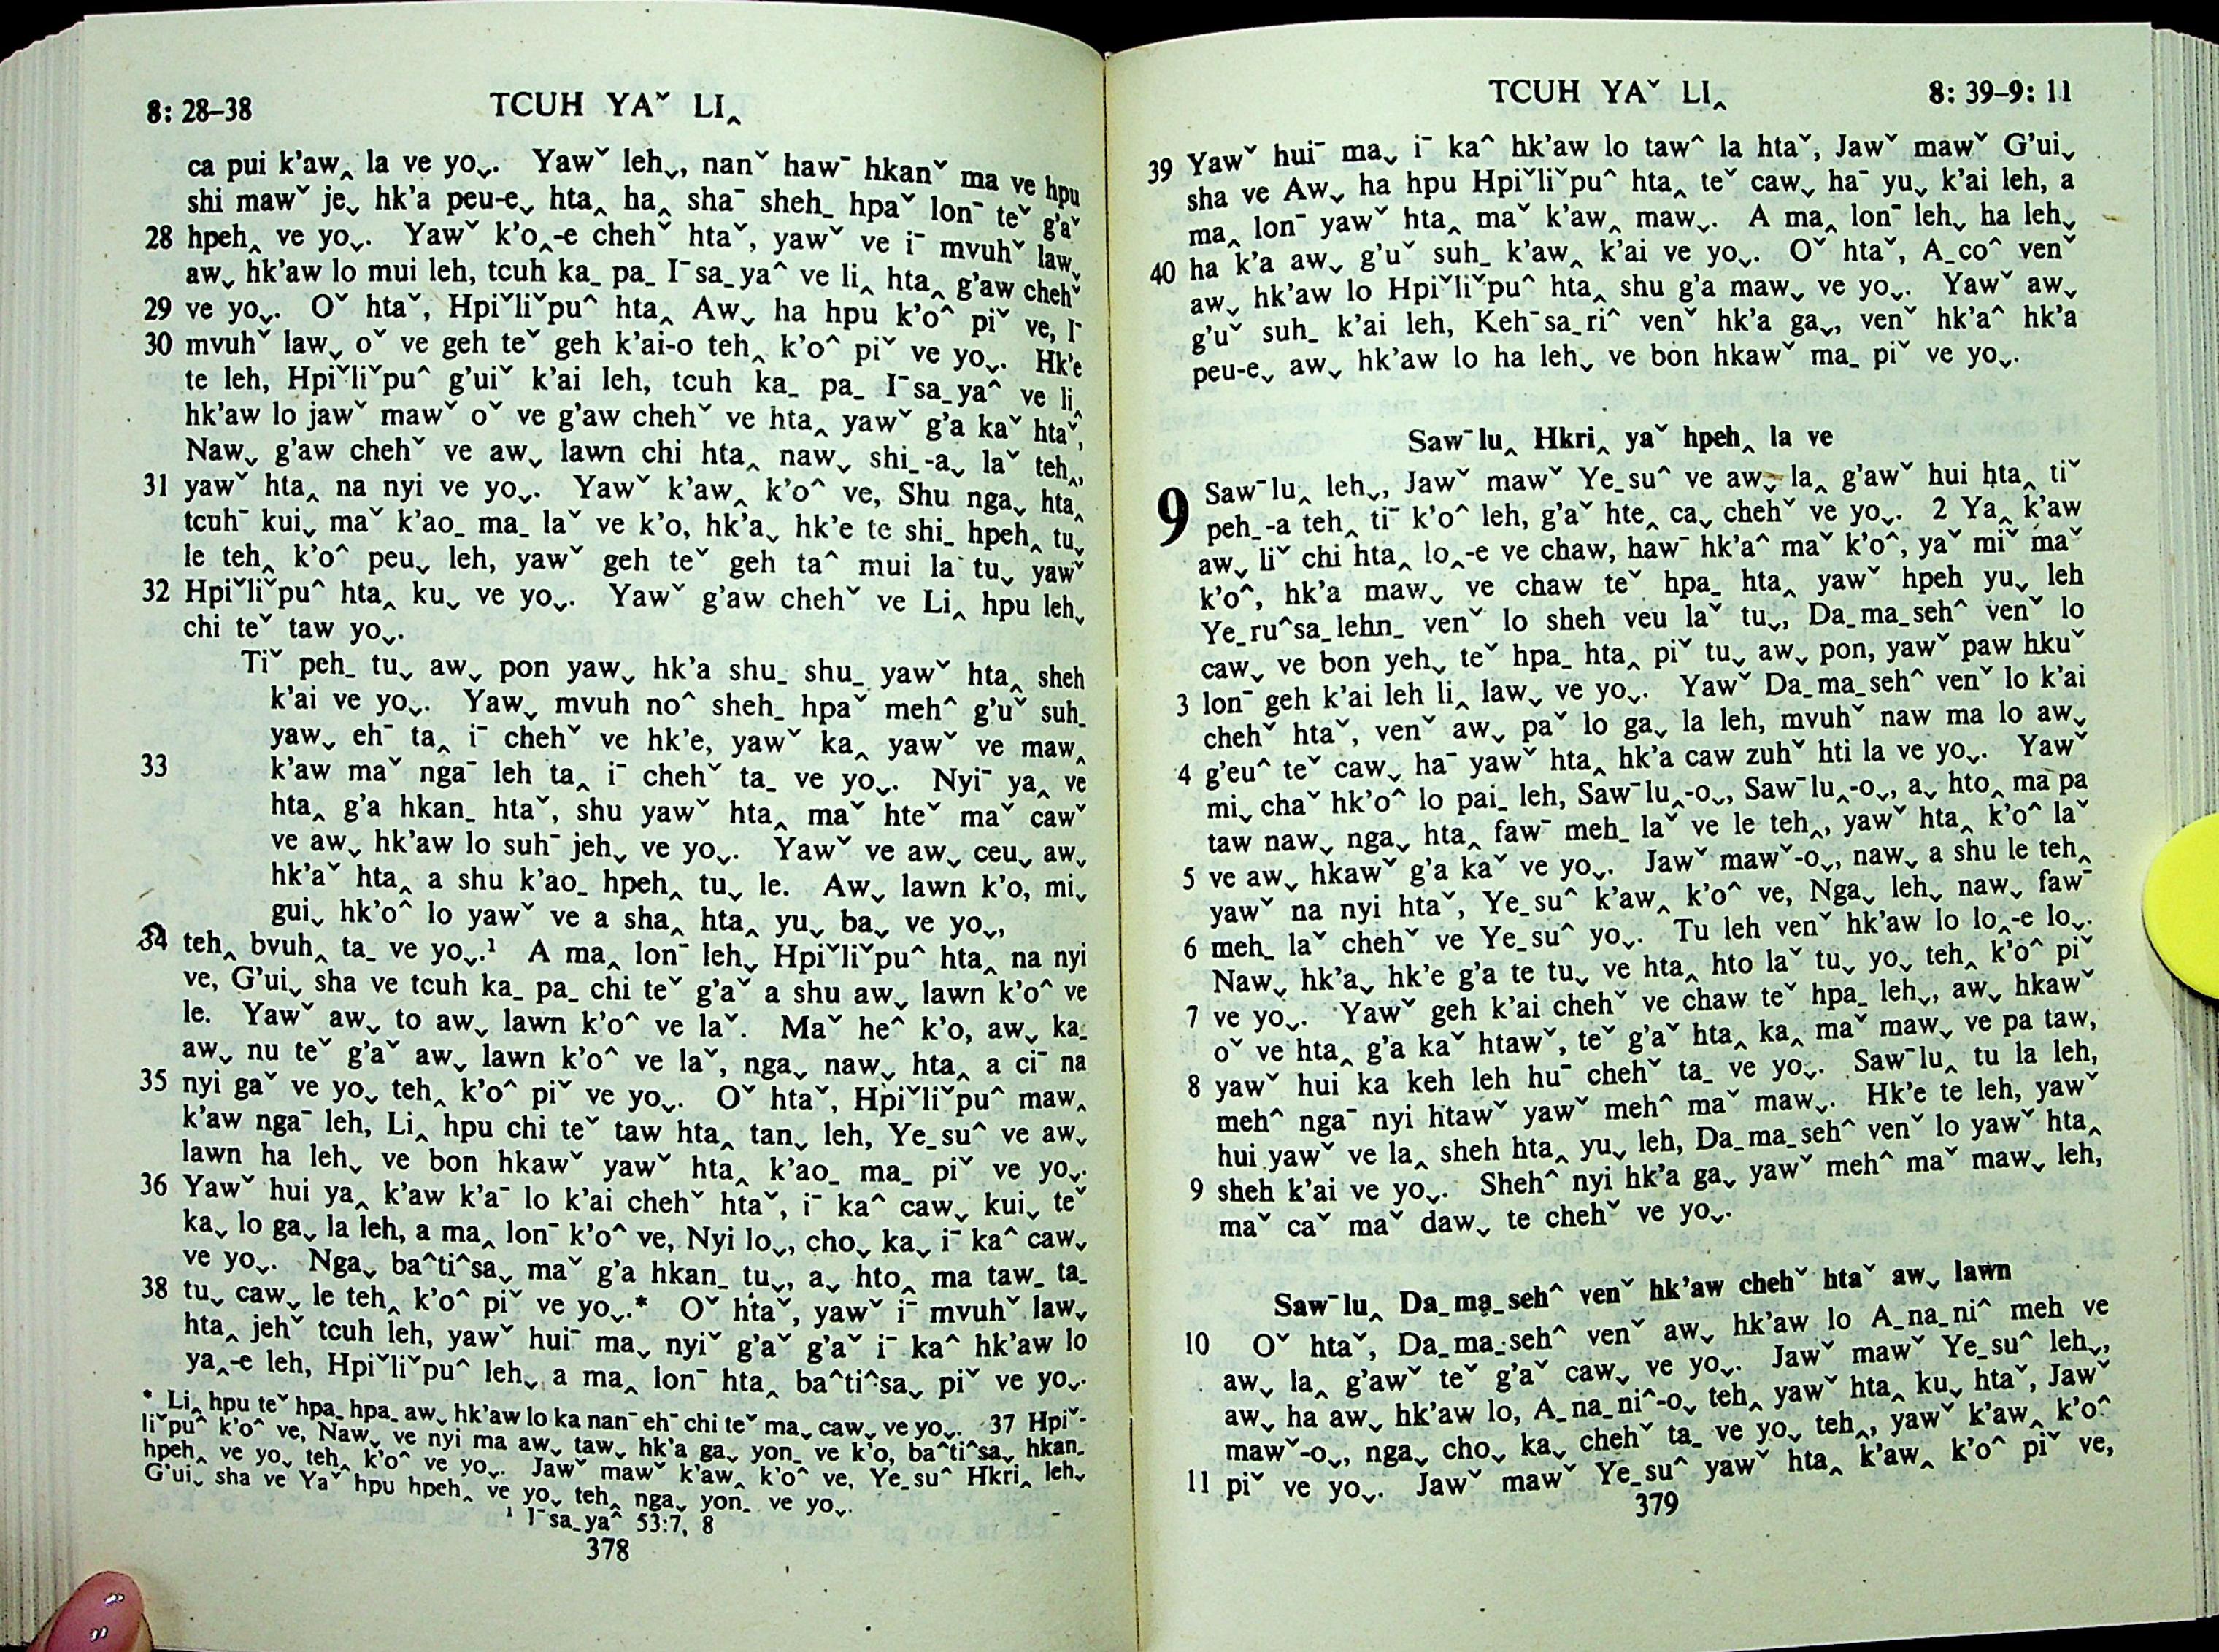 8: 28–38
TCUH YAˇ LI‸
ca pui k’aw‸ la ve yoˬ. Yawˇ lehˬ, nanˇ hawˉ hkanˇ ma ve hpu
shi mawˇ jeˬ hk’a peu-eˬ hta‸ ha‸ shaˉ sheh_ hpaˇ lonˉ teˇ g’aˇ
28 hpeh‸ ve yoˬ. Yawˇ k’o‸-e chehˇ htaˇ, yawˇ ve iˉ mvuhˇ lawˬ
awˬ hk’aw lo mui leh, tcuh ka_ pa_ Iˉsa_ya^ ve li‸ hta‸ g’aw chehˇ
29 ve yoˬ. Oˇ htaˇ, Hpiˇliˇpu^ hta‸ Awˬ ha hpu k’o^ piˇ ve, Iˉ
30 mvuhˇ lawˬ oˇ ve geh teˇ geh k’ai-o teh‸ k’o^ piˇ ve yoˬ. Hk’e
te leh, Hpiˇliˇpu^ g’uiˇ k’ai leh, tcuh ka_ pa_ Iˉsa_ya^ ve li‸
hk’aw lo jawˇ mawˇ oˇ ve g’aw chehˇ ve hta‸ yawˇ g’a kaˇ htaˇ,
Nawˬ g’aw chehˇ ve awˬ lawn chi hta‸ nawˬ shi_-aˬ laˇ teh‸,
31 yawˇ hta‸ na nyi ve yoˬ. Yawˇ k’aw‸ k’o^ ve, Shu ngaˬ hta‸
tcuhˉ kuiˬ maˇ k’ao_ ma_ laˇ ve k’o, hk’aˬ hk’e te shi_ hpeh‸ tuˬ
le teh‸ k’o^ peuˬ leh, yawˇ geh teˇ geh ta^ mui la tuˬ yawˇ
32 Hpiˇliˇpu^ hta‸ kuˬ ve yoˬ. Yawˇ g’aw chehˇ ve Li‸ hpu lehˬ
chi teˇ taw yoˬ.
Tiˇ peh_ tuˬ awˬ pon yawˬ hk’a shu_ shu_ yawˇ hta‸ sheh
k’ai ve yoˬ. Yawˬ mvuh no^ sheh_ hpaˇ meh^ g’uˇ suh_
yawˬ ehˉ ta‸ iˉ chehˇ ve hk’e, yawˇ ka‸ yawˇ ve maw‸
33 k’aw maˇ ngaˉ leh ta‸ iˉ chehˇ ta_ ve yoˬ. Nyiˉ ya‸ ve
hta‸ g’a hkan_ htaˇ, shu yawˇ hta‸ maˇ hteˇ maˇ cawˇ
ve awˬ hk’aw lo suhˉ jehˬ ve yoˬ. Yawˇ ve awˬ ceuˬ awˬ
hk’aˇ hta‸ a shu k’ao_ hpeh‸ tuˬ le. Awˬ lawn k’o, miˬ
guiˬ hk’o^ lo yawˇ ve a sha‸ hta‸ yuˬ baˬ ve yoˬ,
34 teh‸ bvuh‸ ta_ ve yoˬ.¹ A ma‸ lonˉ lehˬ Hpiˇliˇpu^ hta‸ na nyi
ve, G’uiˬ sha ve tcuh ka_ pa_ chi teˇ g’aˇ a shu awˬ lawn k’o^ ve
le. Yawˇ awˬ to awˬ lawn k’o^ ve laˇ. Maˇ he^ k’o, awˬ ka_
awˬ nu teˇ g’aˇ awˬ lawn k’o^ ve laˇ, ngaˬ nawˬ hta‸ a ciˉ na
35 nyi gaˇ ve yoˬ teh‸ k’o^ piˇ ve yoˬ. Oˇ htaˇ, Hpiˇliˇpu^ maw‸
k’aw ngaˉ leh, Li‸ hpu chi teˇ taw hta‸ tanˬ leh, Ye_su^ ve awˬ
lawn ha lehˬ ve bon hkawˇ yawˇ hta‸ k’ao_ ma_ piˇ ve yoˬ.
36 Yawˇ hui ya‸ k’aw k’aˉ lo k’ai chehˇ htaˇ, iˉ ka^ cawˬ kuiˬ teˇ
kaˬ lo gaˬ la leh, a ma‸ lonˉ k’o^ ve, Nyi loˬ, choˬ kaˬ iˉ ka^ cawˬ
ve yoˬ. Ngaˬ ba^ti^saˬ maˇ g’a hkan_ tuˬ, aˬ hto‸ ma taw_ ta_
38 tuˬ cawˬ le teh‸ k’o^ piˇ ve yoˬ.* Oˇ htaˇ, yawˇ iˉ mvuhˇ lawˬ
hta‸ jehˇ tcuh leh, yawˇ huiˉ maˬ nyiˇ g’aˇ g’aˇ iˉ ka^ hk’aw lo
ya‸-e leh, Hpiˇliˇpu^ lehˬ a ma‸ lonˉ hta‸ ba^ti^saˬ piˇ ve yoˬ.
* Li‸ hpu teˇ hpa_ hpa_ awˬ hk’aw lo ka nanˉ ehˉ chi teˇ maˬ cawˬ ve yoˬ. 37 Hpiˇ-
liˇpu^ k’o^ ve, Nawˬ ve nyi ma awˬ tawˬ hk’a gaˬ yon_ ve k’o, ba^ti^saˬ hkan_
hpeh‸ ve yoˬ teh‸ k’o^ ve yoˬ. Jawˇ mawˇ k’aw‸ k’o^ ve, Ye_su^ Hkri‸ lehˬ
G’uiˬ sha ve Yaˇ hpu hpeh‸ ve yoˬ teh‸ ngaˬ yon_ ve yoˬ.
¹ Iˉsa_ya^ 53:7, 8
378
TCUH YAˇ LI‸
8: 39–9: 11
39 Yawˇ huiˉ maˬ iˉ ka^ hk’aw lo taw^ la htaˇ, Jawˇ mawˇ G’uiˬ
sha ve Awˬ ha hpu Hpiˇliˇpu^ hta‸ teˇ cawˬ haˉ yuˬ k’ai leh, a
ma‸ lonˉ yawˇ hta‸ maˇ k’aw‸ mawˬ. A ma‸ lonˉ lehˬ ha lehˬ
ha k’a awˬ g’uˇ suh_ k’aw‸ k’ai ve yoˬ. Oˇ htaˇ, A_co^ venˇ
40 awˬ hk’aw lo Hpiˇliˇpu^ hta‸ shu g’a mawˬ ve yoˬ. Yawˇ awˬ
g’uˇ suh_ k’ai leh, Kehˉsa_ri^ venˇ hk’a gaˬ, venˇ hk’a^ hk’a
peu-eˬ awˬ hk’aw lo ha lehˬ ve bon hkawˇ ma_ piˇ ve yoˬ.
Sawˉlu‸ Hkri‸ yaˇ hpeh‸ la ve
9 Sawˉlu‸ lehˬ, Jawˇ mawˇ Ye_su^ ve awˬ la‸ g’awˇ hui hta‸ tiˇ
peh_-a teh‸ tiˉ k’o^ leh, g’aˇ hte‸ caˬ chehˇ ve yoˬ. 2 Ya‸ k’aw
awˬ liˇ chi hta‸ lo‸-e ve chaw, hawˉ hk’a^ maˇ k’o^, yaˇ miˇ maˇ
k’o^, hk’a mawˬ ve chaw teˇ hpa_ hta‸ yawˇ hpeh yuˬ leh
Ye_ru^sa_lehn_ venˇ lo sheh veu laˇ tuˬ, Da_ma_seh^ venˇ lo
cawˬ ve bon yehˬ teˇ hpa_ hta‸ piˇ tuˬ awˬ pon, yawˇ paw hkuˇ
3 lonˉ geh k’ai leh li‸ lawˬ ve yoˬ. Yawˇ Da_ma_seh^ venˇ lo k’ai
chehˇ htaˇ, venˇ awˬ paˇ lo gaˬ la leh, mvuhˇ naw ma lo awˬ
4 g’eu^ teˇ cawˬ haˉ yawˇ hta‸ hk’a caw zuhˇ hti la ve yoˬ. Yawˇ
miˬ chaˇ hk’o^ lo pai_ leh, Sawˉlu‸-oˬ, Sawˉlu‸-oˬ, aˬ hto‸ ma pa
taw nawˬ ngaˬ hta‸ fawˉ meh_ laˇ ve le teh‸, yawˇ hta‸ k’o^ laˇ
5 ve awˬ hkawˇ g’a kaˇ ve yoˬ. Jawˇ mawˇ-oˬ, nawˬ a shu le teh‸
yawˇ na nyi htaˇ, Ye_su^ k’aw‸ k’o^ ve, Ngaˬ lehˬ nawˬ fawˉ
6 meh_ laˇ chehˇ ve Ye_su^ yoˬ. Tu leh venˇ hk’aw lo lo‸-e loˬ.
Nawˬ hk’aˬ hk’e g’a te tuˬ ve hta‸ hto laˇ tuˬ yoˬ teh‸ k’o^ piˇ
7 ve yoˬ. Yawˇ geh k’ai chehˇ ve chaw teˇ hpa_ lehˬ, awˬ hkawˇ
oˇ ve hta‸ g’a kaˇ htawˇ, teˇ g’aˇ hta‸ ka‸ maˇ mawˬ ve pa taw,
8 yawˇ hui ka keh leh huˉ chehˇ ta_ ve yoˬ. Sawˉlu‸ tu la leh,
meh^ ngaˉ nyi htawˇ yawˇ meh^ maˇ mawˬ. Hk’e te leh, yawˇ
hui yawˇ ve la‸ sheh hta‸ yuˬ leh, Da_ma_seh^ venˇ lo yawˇ hta‸
9 sheh k’ai ve yoˬ. Sheh^ nyi hk’a gaˬ yawˇ meh^ maˇ mawˬ leh,
maˇ caˇ maˇ dawˬ te chehˇ ve yoˬ.
Sawˉlu‸ Da_ma_seh^ venˇ hk’aw chehˇ htaˇ awˬ lawn
10 Oˇ htaˇ, Da_ma_seh^ venˇ awˬ hk’aw lo A_na_ni^ meh ve
awˬ la‸ g’awˇ teˇ g’aˇ cawˬ ve yoˬ. Jawˇ mawˇ Ye_su^ lehˬ,
awˬ ha awˬ hk’aw lo, A_na_ni^-oˬ teh‸ yawˇ hta‸ kuˬ htaˇ, Jawˇ
mawˇ-oˬ, ngaˬ choˬ kaˬ chehˇ ta_ ve yoˬ teh‸, yawˇ k’aw‸ k’o^
11 piˇ ve yoˬ. Jawˇ mawˇ Ye_su^ yawˇ hta‸ k’aw‸ k’o^ piˇ ve,
379